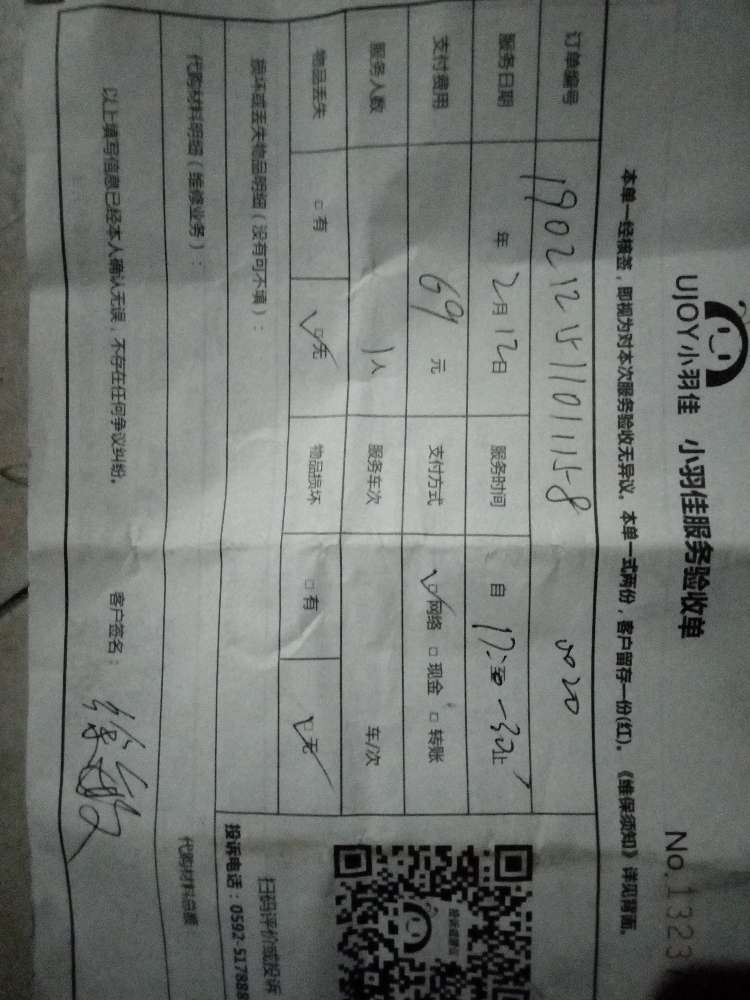 UJOY小羽佳 小羽佳服务验收单 No.1323
本单一经核签，即视为对本次服务验收无异议。本单一式两份，客户留存一份(红)。《维保须知》详见背面。
订单编号 190212511011158 0020
服务日期 年 2月 12日 服务时间 自 止
支付费用 69 元 支付方式 ☑网络 □现金 □转账
服务人数 1人 服务车次 车/次
物品丢失 □有 ☑无 物品损坏 □有 ☑无
损坏或丢失物品明细（没有可不填）：
扫码评价或投诉
投诉电话：0592-517888
代购材料明细（维修业务）： 代购材料总额
以上填写信息已经本人确认无误，不存在任何争议纠纷。 客户签名： 徐敏